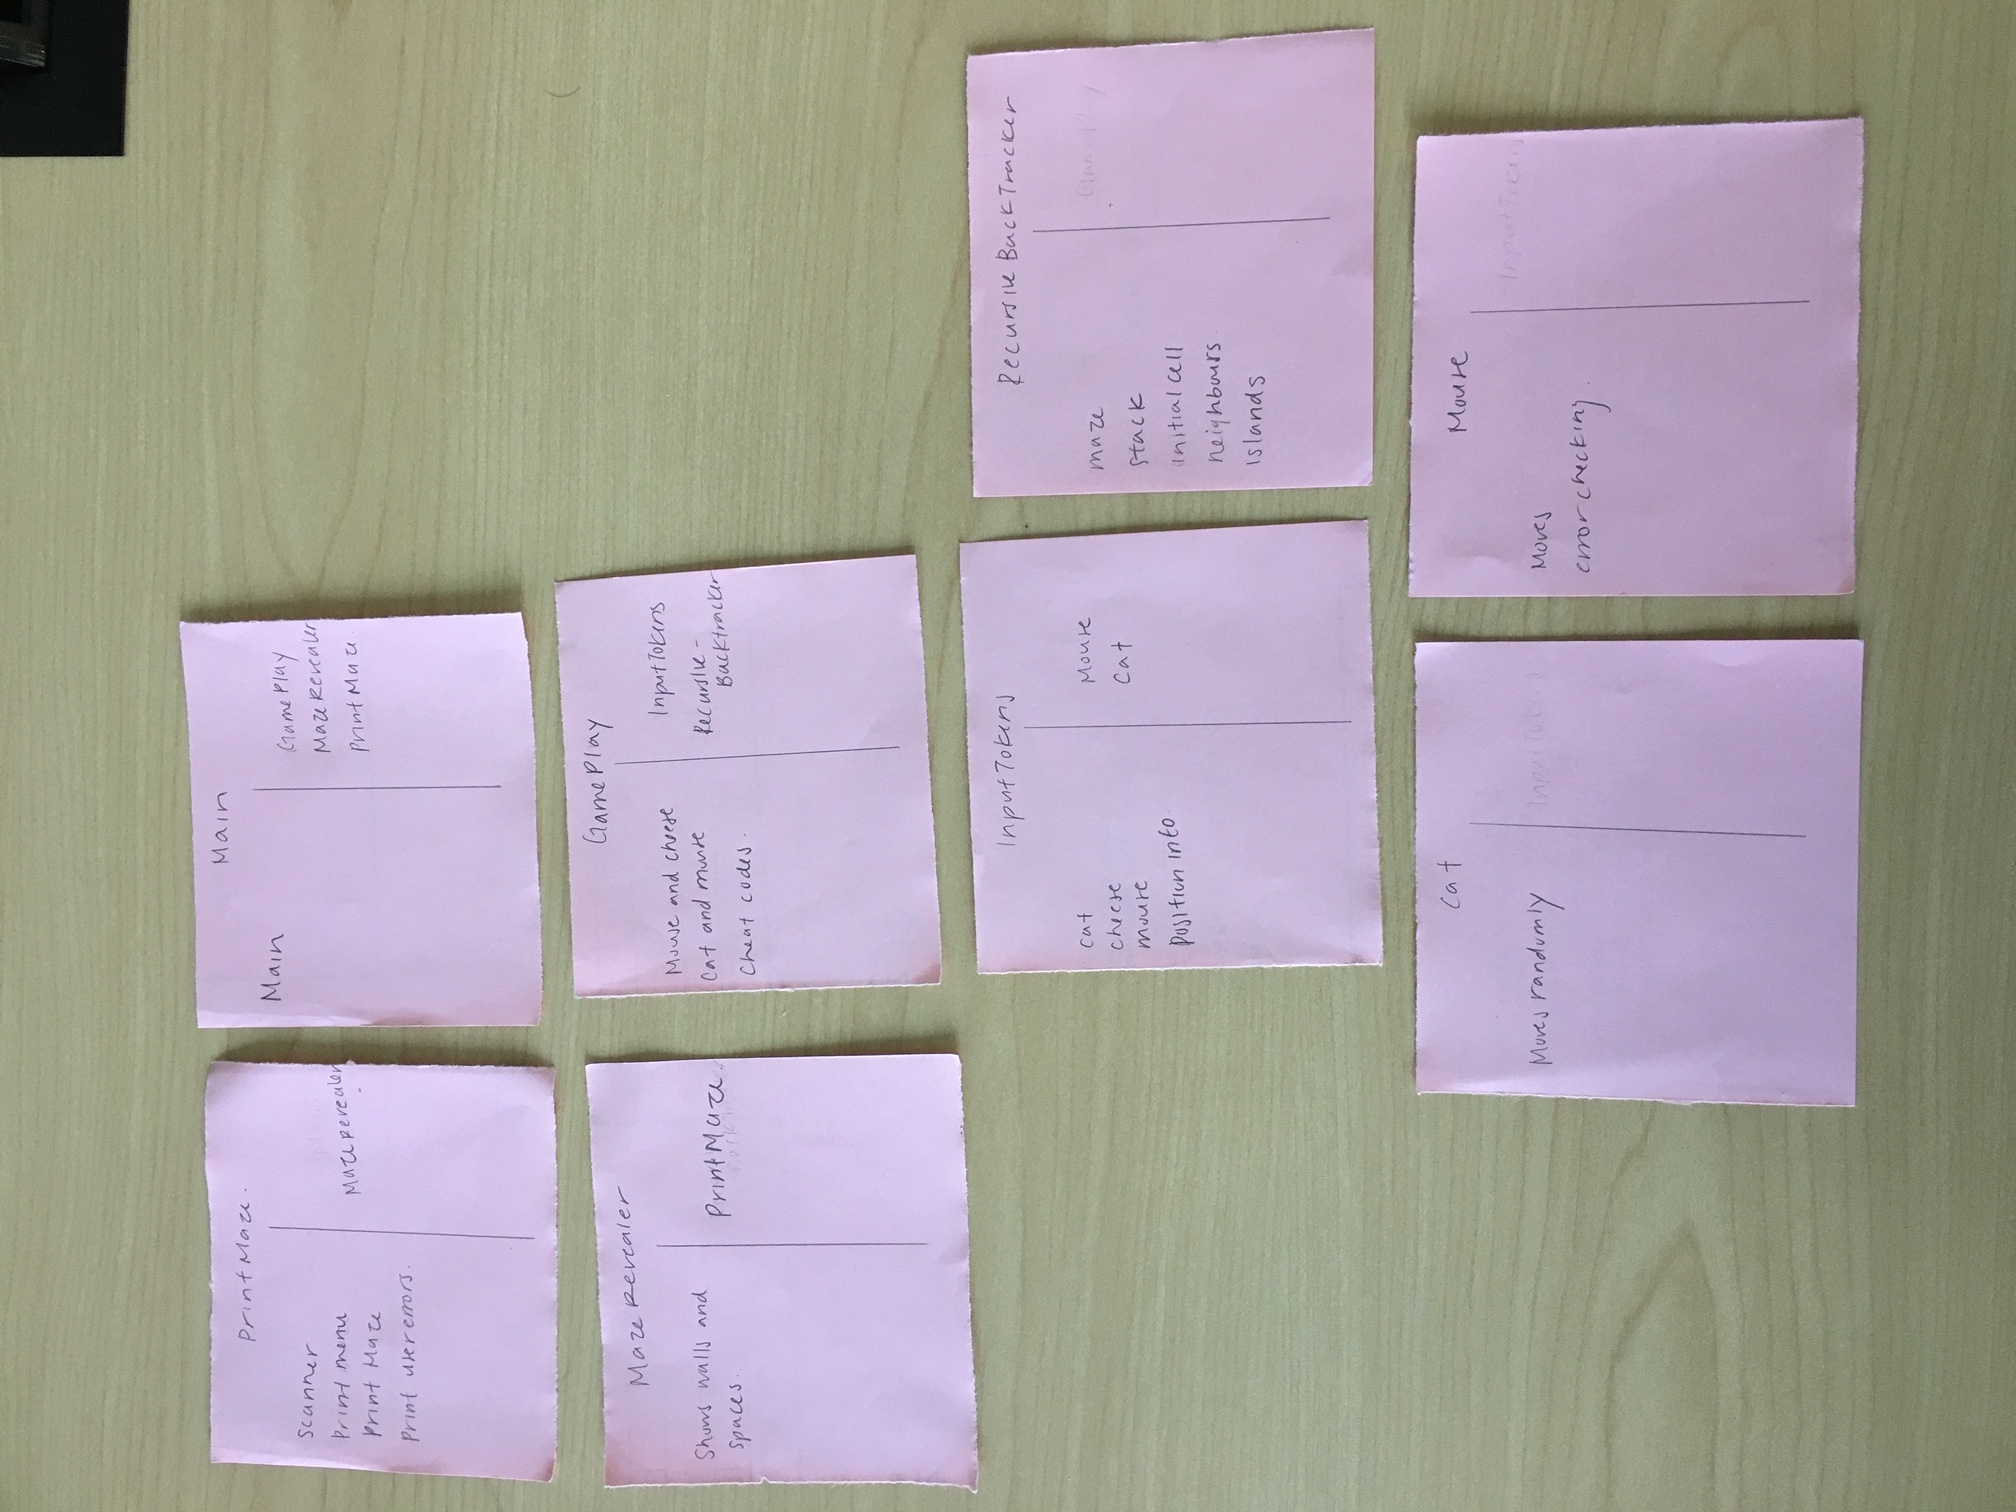 PrintMaze.
scanner
Print menu
Print Maze
Print user errors.
MazeRevealer
Main
Main
GamePlay
MazeRevealer
PrintMaze.
MazeRevealer
Shows walls and
spaces.
PrintMaze.
GamePlay
Mouse and cheese
Cat and mouse
Cheat codes.
InputTokens
Recursive-
Backtracker
InputTokens
cat
cheese
mouse
Position into
Mouse
Cat
Recursive BackTracker
maze
stack
initial cell
neighbours
islands
GamePlay
Cat
Moves randomly
InputTokens
Mouse
Moves
error checking.
InputTokens